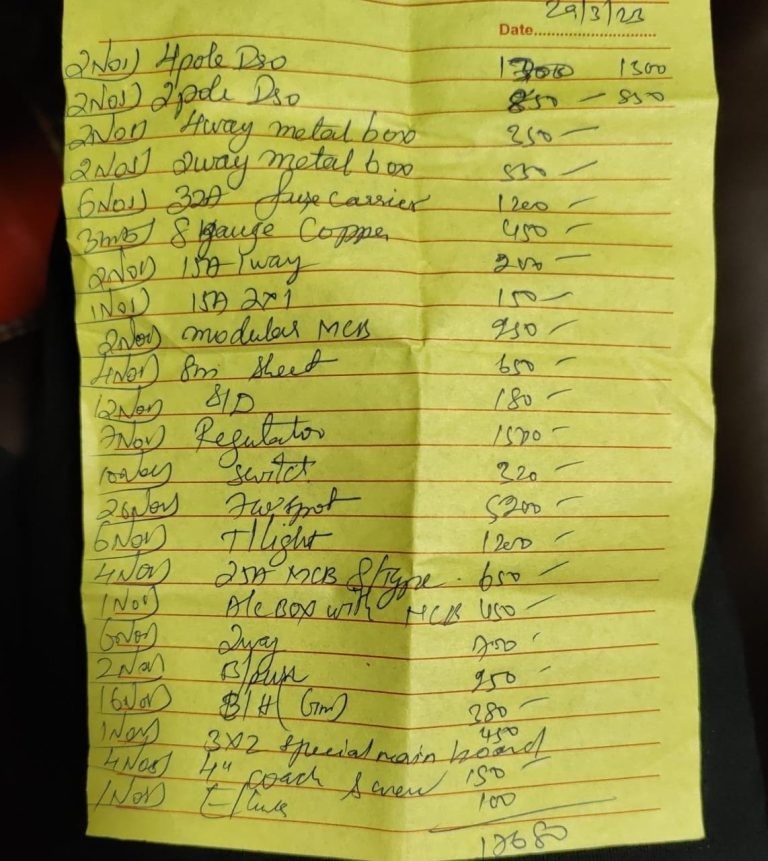 29/3/23
Date
2Nos) 4pole Dso 1300
2Nos) 2pole Dso 850 - 850
2Nos) 4way metal box 250 -
2Nos) 2way metal box 550 -
6Nos) 32A fuse carrier 1200 -
3mts) 8 gauge Copper 450 -
2Nos) 15A 1way 200 -
1Nos) 15A 2x1 150 -
2Nos) modular MCB 950 -
4Nos) 8m Sheet 650 -
12Nos) S/D 180 -
7Nos) Regulator 1500 -
10Nos) Switch 320 -
26Nos) 5200 -
6Nos) T/light 1200 -
4Nos) 25A MCB S/Type 650 -
1Nos) A/c Box with MCB 450 -
6Nos) 2way
2Nos) 950 -
16Nos) B/H (6m) 380 -
1Nos) 3x2 Special main board 450
4Nos) 4" coach Screw 150
1Nos) 100
17680